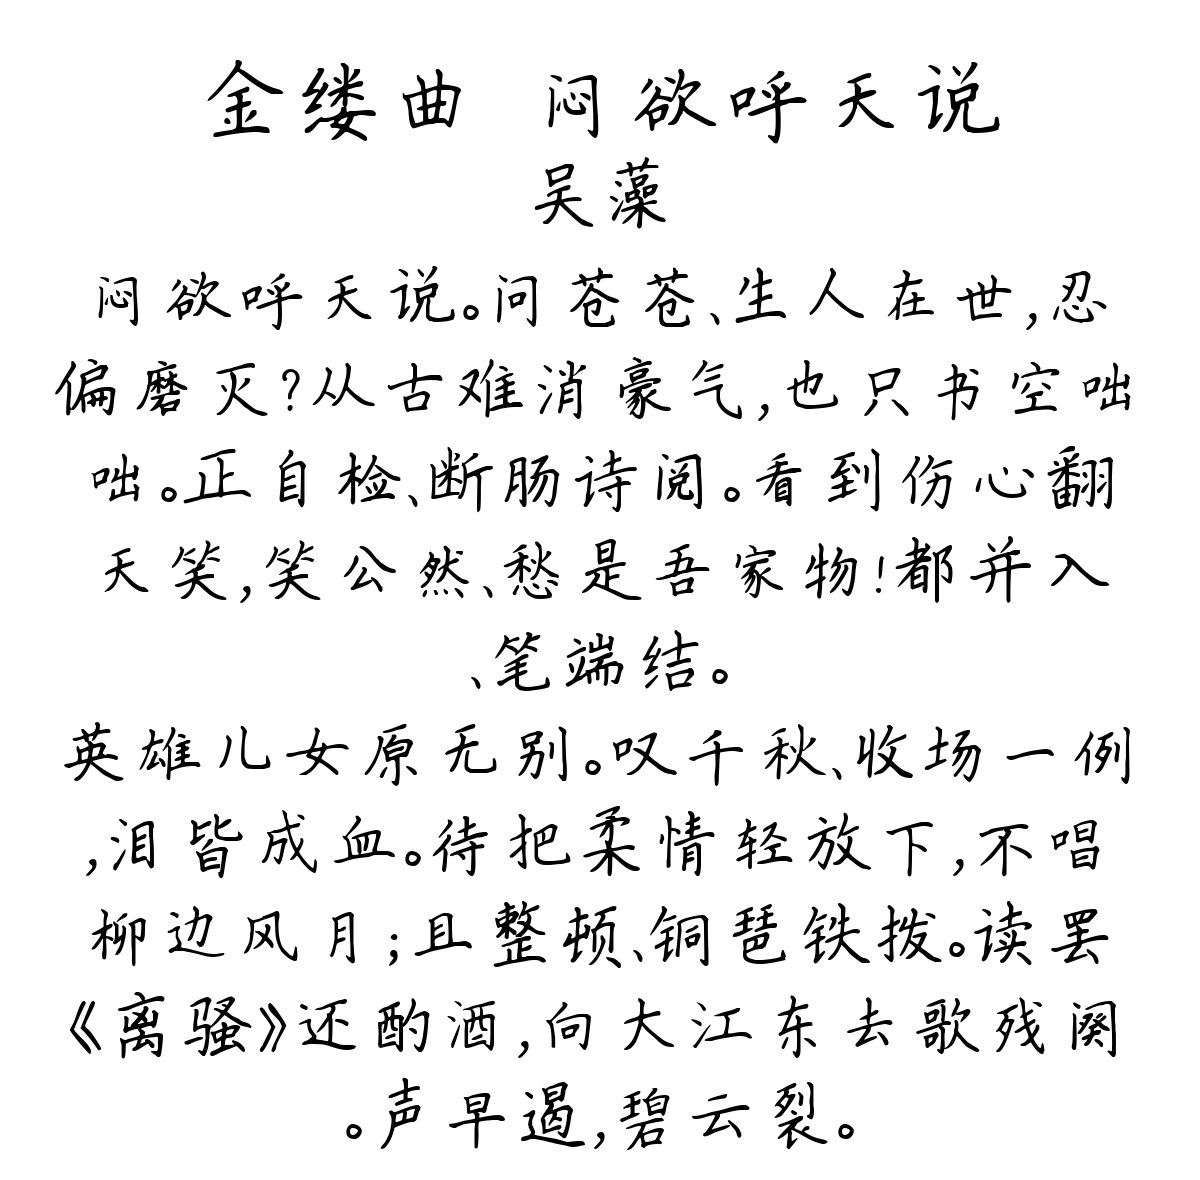 金缕曲 闷欲呼天说
吴藻
闷欲呼天说。问苍苍、生人在世,忍
偏磨灭?从古难消豪气,也只书空咄
咄。正自检、断肠诗阅。看到伤心翻
天笑,笑公然、愁是吾家物!都并入
、笔端结。
英雄儿女原无别。叹千秋、收场一例
,泪皆成血。待把柔情轻放下,不唱
柳边风月;且整顿、铜琶铁拨。读罢
《离骚》还酌酒,向大江东去歌残阕
。声早遏,碧云裂。